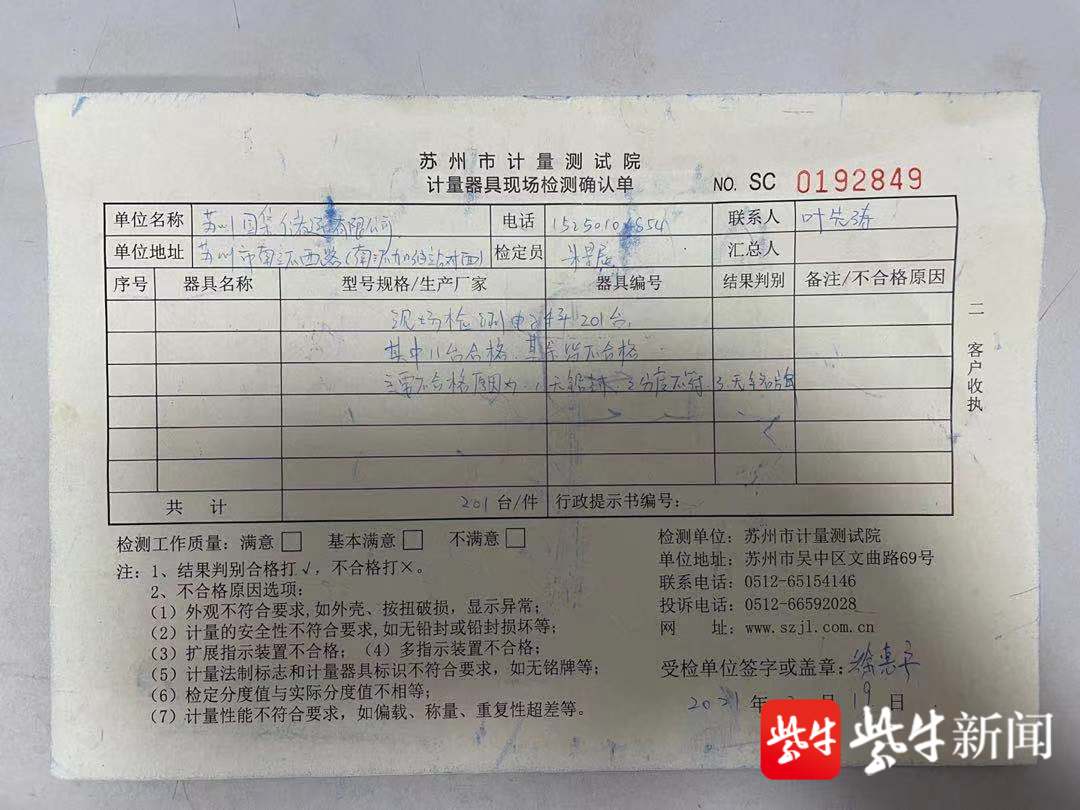 苏州市计量测试院
计量器具现场检测确认单
NO. SC 0192849
单位名称 苏州 有限公司 电话 联系人 叶先涛
单位地址 苏州市南环西路(南环加油站对面) 检定员 汇总人
序号 器具名称 型号规格/生产厂家 器具编号 结果判别 备注/不合格原因
现场检测电子秤201台,
其中11台合格 其余皆不合格
主要不合格原因为:1无铅封,2分度不符,3无铭牌
共计 201台/件 行政提示书编号:
二 客户收执
检测工作质量:满意□ 基本满意□ 不满意□
注:1、结果判别合格打√,不合格打×。
2、不合格原因选项:
(1)外观不符合要求,如外壳、按扭破损,显示异常;
(2)计量的安全性不符合要求,如无铅封或铅封损坏等;
(3)扩展指示装置不合格;(4)多指示装置不合格;
(5)计量法制标志和计量器具标识不符合要求,如无铭牌等;
(6)检定分度值与实际分度值不相等;
(7)计量性能不符合要求,如偏载、称量、重复性超差等。
检测单位:苏州市计量测试院
单位地址:苏州市吴中区文曲路69号
联系电话:0512-65154146
投诉电话:0512-66592028
网 址:www.szjl.com.cn
受检单位签字或盖章:徐惠
2021年 月19日
紫牛 紫牛新闻